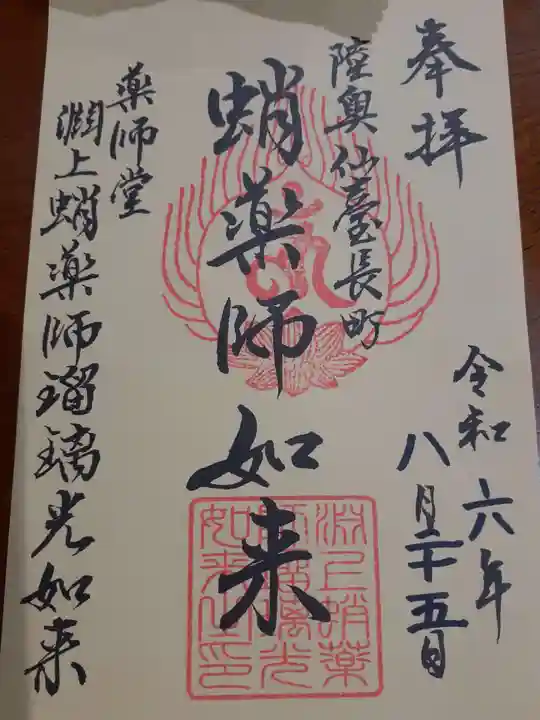 奉拝
令和六年
八月二十五日
陸奥仙臺長町
蛸薬師如来
薬師堂
渕上蛸薬師瑠璃光如来
淵上蛸薬
師瑠璃光
如来之印